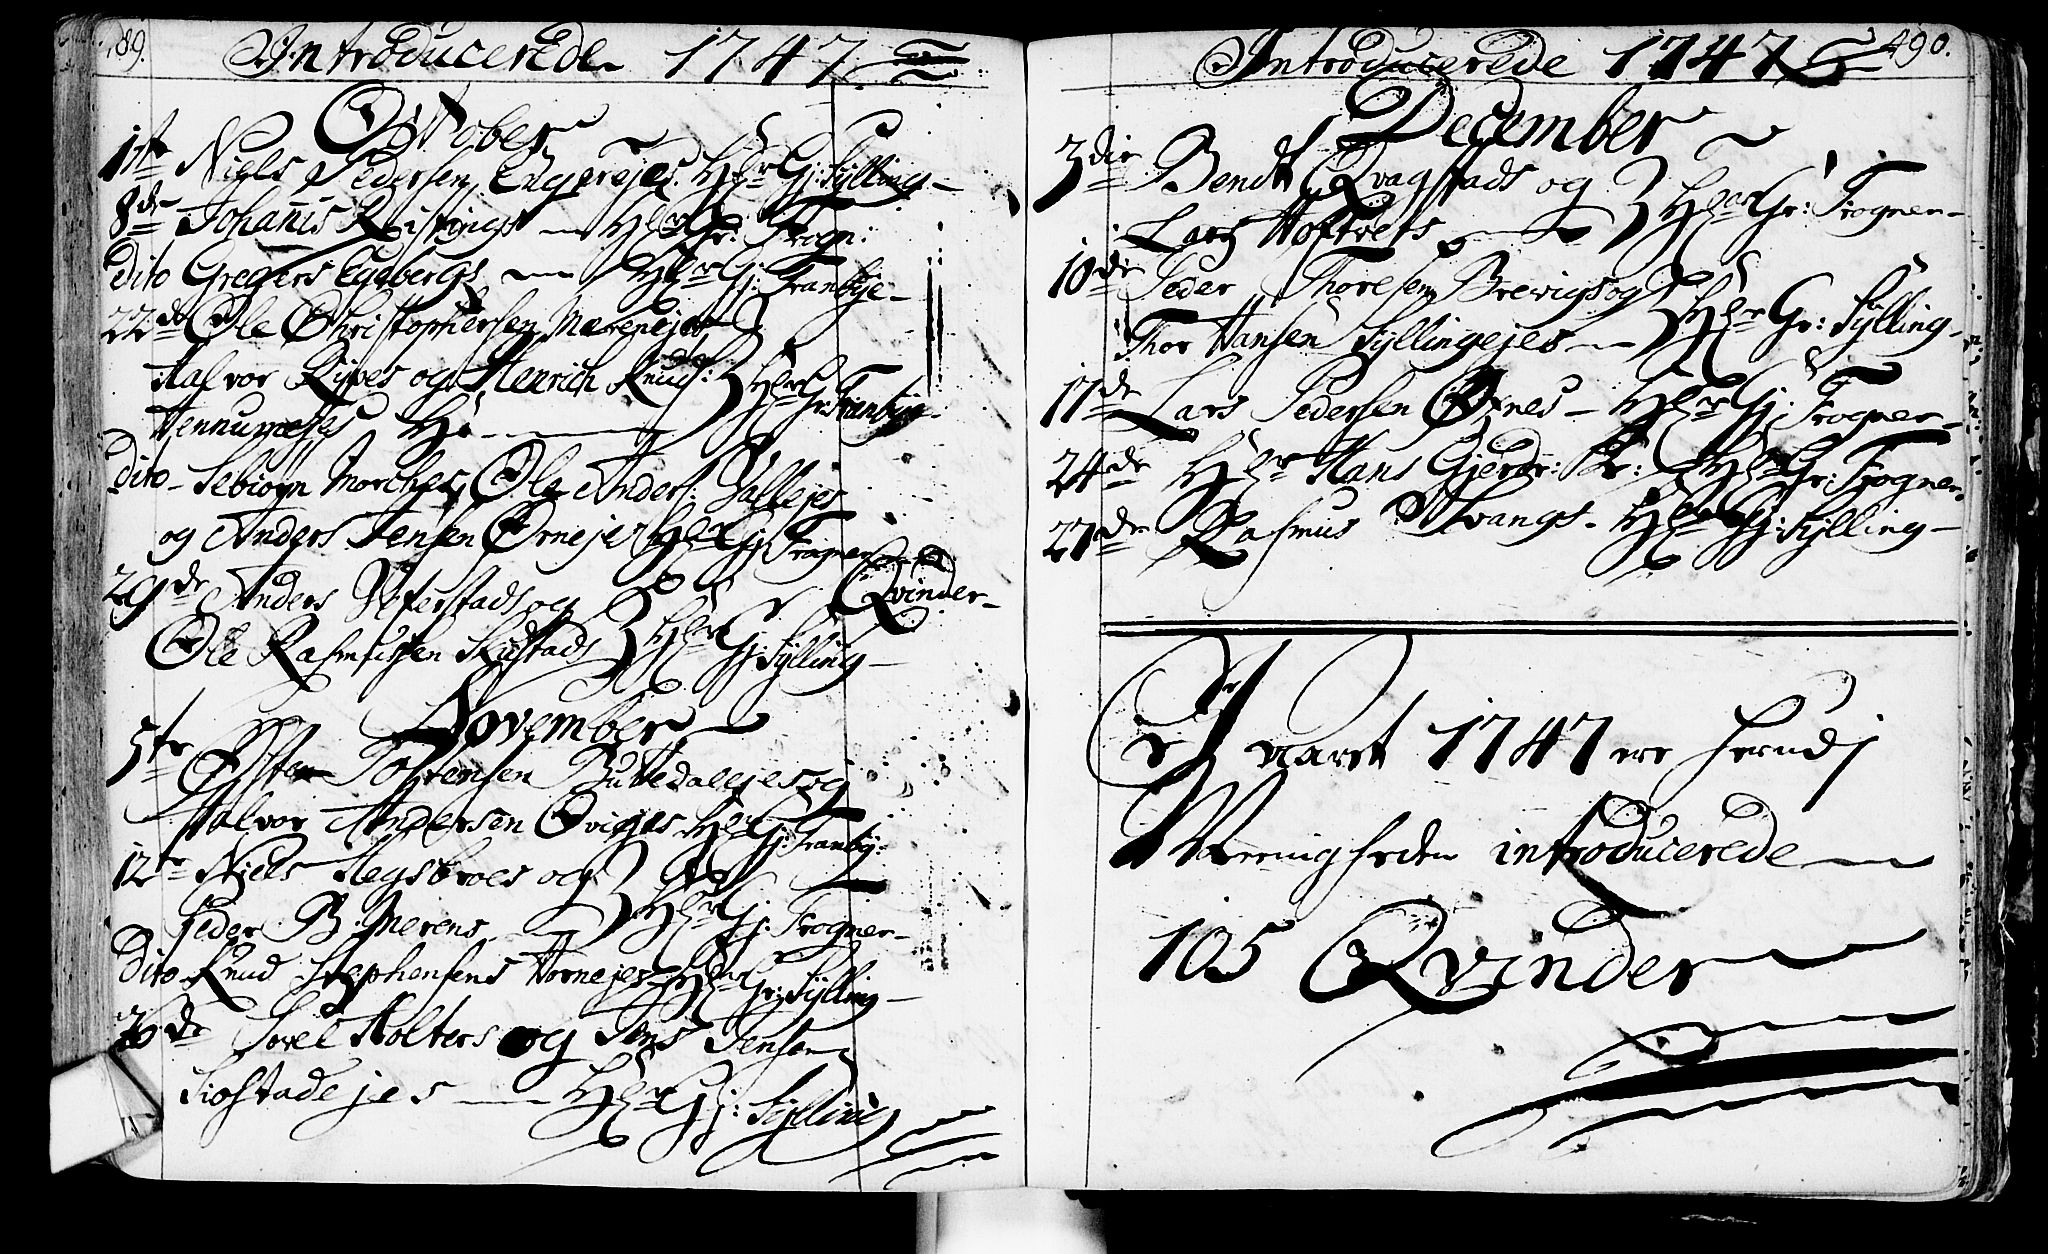 489.
Introducerede 1747
October
1ste Niels Pedersen Engerejes. Her Gj: Sylling
8de Johanis Kistings Her Gr: Frogn:
Dito Gregers Egebergs Her Gj: Tranbye
22de Ole Christophersen Merenejes
Halvor Rypes og Henrich Knuds:
Hennumejes Her Gr: Tranbye
Dito Sebiørn Morches, Ole Anders: Vallejes
og Anders Jensen Ørneje Her Gj: Frogner
29de Anders Veferstads og
Ole Rasmussen Kustads Her Gj: Sylling
Qvinder
November
5te Østen Tostensen Buttedalejes og
Halvor Andersen Øviejes Her Gj: Tranby:
12te Niels Hegsbroes og
Peder B: Merens Her Gj: Frogner
Dito Knud Stephensens Hornejes Her Gr: Sylling
26de Povel Holters og Jens Jensen
Siøstadejes Her Gj: Sylling
490.
Introducerede 1747
December
3die Bendt Qvagstads og
Lars Toftvets Her Gr: Frogner
10de Peder Thoresen Brevigs og
Thor Hansen Syllingejes Her Gr: Sylling
17de Lars Pedersen Ørnes Her Gj: Frogner
24de Her Hans Gjerdr: Her Gr: Frogner
27de Rasmus Ulvangs Her Gj: Sylling
I aaret 1747 ere herudj
Meenigheden introducerede
105 Qvinder